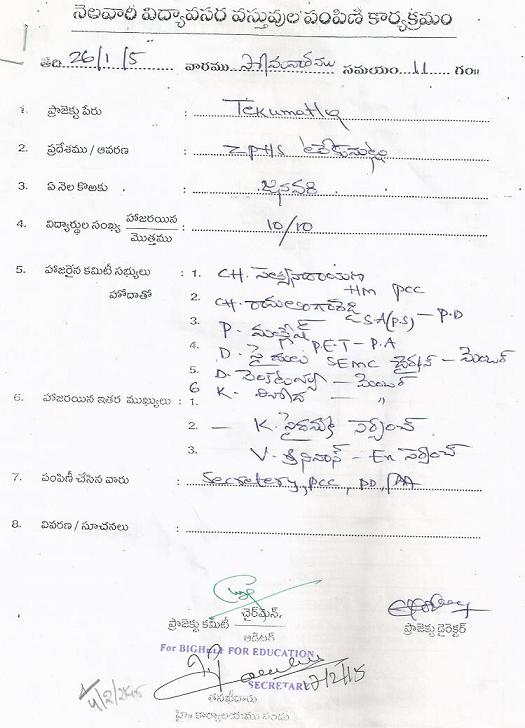 నెలవారీ విద్యావసర వస్తువుల పంపిణీ కార్యక్రమం
తేది 26/1/15 వారము సోమవారము సమయం 11 గం॥
1. ప్రాజెక్టు పేరు : Tekumatla
2. ప్రదేశము / ఆవరణ : ZPHS టేకుమట్ల
3. ఏ నెల కొఱకు : జనవరి
4. విద్యార్థుల సంఖ్య హాజరయిన / మొత్తము : 10/10
5. హాజరైన కమిటీ సభ్యులు : 1. CH. సత్యనారాయణ
HM PCC
హోదాతో 2. CH. రామలింగారెడ్డి
S.A(P.S) - P.D
3. P. మల్లేష్
P.E.T - P.A
4. D. సైదులు SEMC చైర్మన్ - మెంబర్
5. D. వెంకటయ్య - మెంబర్
6 K. వినోద - "
6. హాజరయిన ఇతర ముఖ్యులు : 1.
2. — K. సైదమ్మ సర్పంచ్
3. V. శ్రీనివాస్ - Ex సర్పంచ్
7. పంపిణీ చేసిన వారు : Secretery, PCC, PD, PA
8. వివరణ / సూచనలు :
ప్రాజెక్టు కమిటీ చైర్‌మెన్
ప్రాజెక్టు డైరెక్టర్
ఆడిటర్
For BIGHelp FOR EDUCATION
SECRETARY
12/2/15
4/2/2015
తనఖీదారు
హై॥ కార్యాలయము పంపు